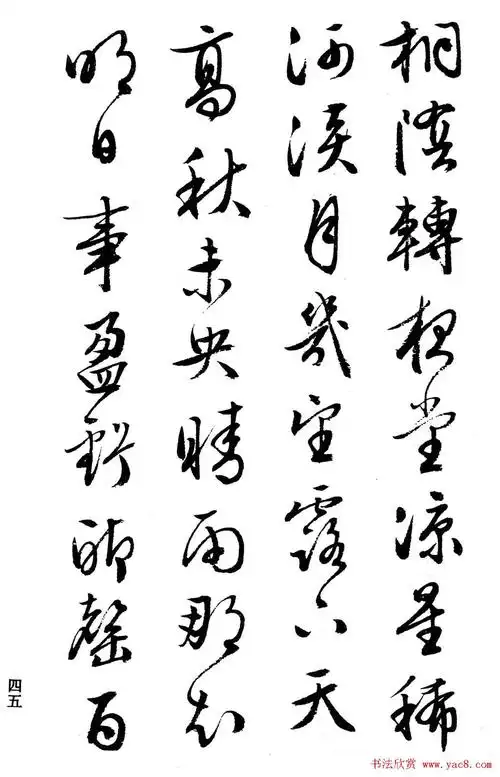 桐陰轉堂涼星稀
河漢月幾望露下天
高秋未央晴雨那知
明日事盈虧聊罄百
四五
书法欣赏 www.yac8.com